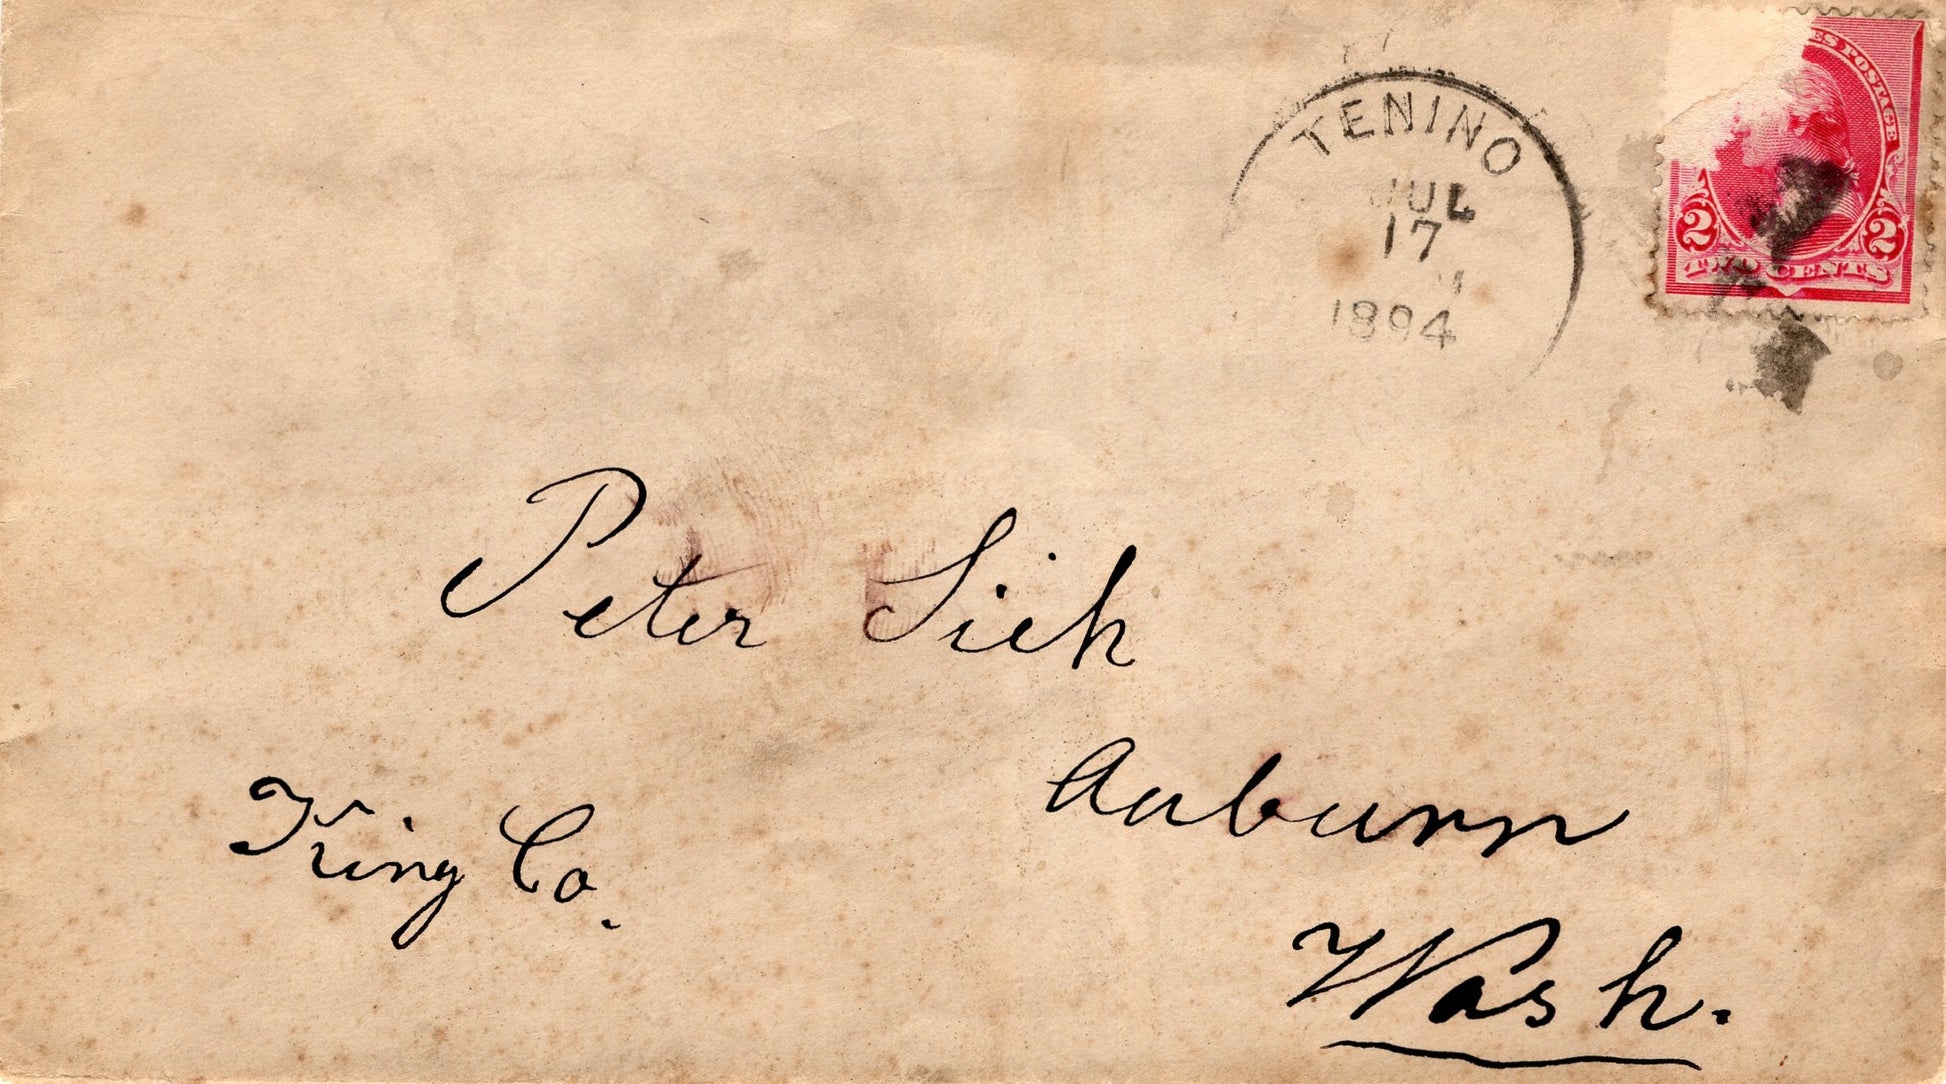 TENINO
JUL
17
1894
ES POSTAGE
2 2
TWO CENTS
Peter Sieh
Auburn
King Co.
Wash.